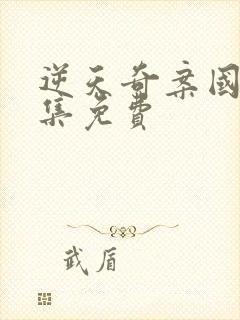 逆天奇案國
集免費
武盾